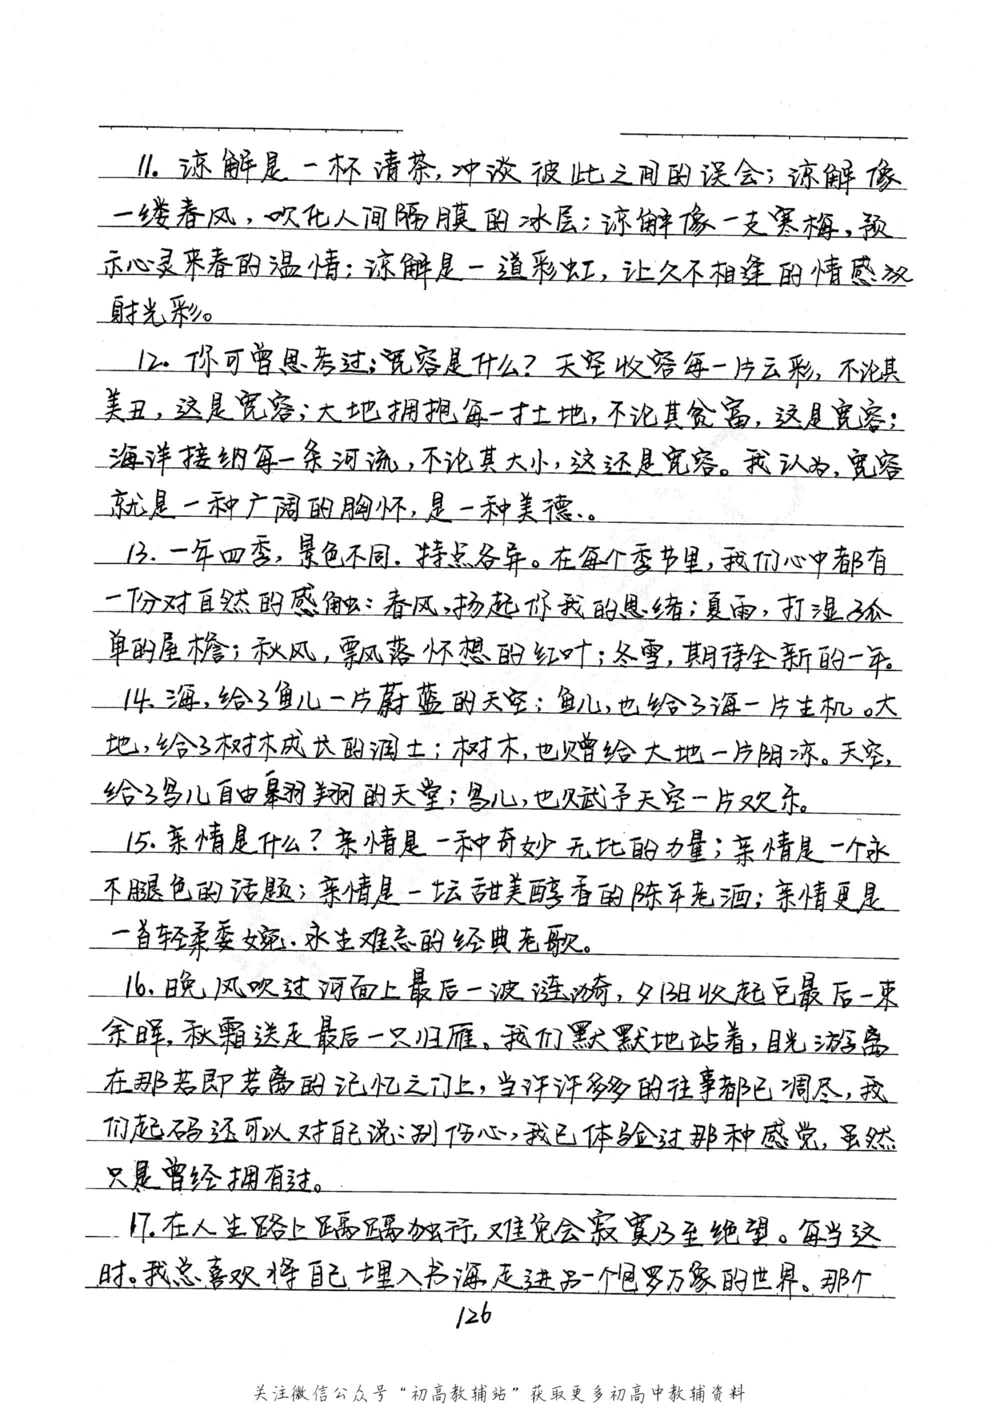 11. 谅解是一杯清茶,冲淡彼此之间的误会;谅解像
一缕春风,吹化人间隔膜的冰层;谅解像一支寒梅,预
示心灵来春的温情;谅解是一道彩虹,让久不相逢的情感放
射光彩。
12. 你可曾思考过:宽容是什么?天空收容每一片云彩,不论其
美丑,这是宽容;大地拥抱每一寸土地,不论其贫富,这是宽容;
海洋接纳每一条河流,不论其大小,这还是宽容。我认为,宽容
就是一种广阔的胸怀,是一种美德。
13. 一年四季,景色不同.特点各异。在每个季节里,我们心中都有
一份对自然的感触:春风,扬起你我的思绪;夏雨,打湿了孤
单的屋檐;秋风,飘落怀想的红叶;冬雪,期待全新的一年。
14. 海,给了鱼儿一片蔚蓝的天空;鱼儿,也给了海一片生机。大
地,给了树木成长的润土;树木,也赠给大地一片阴凉。天空,
给了鸟儿自由翱翔的天堂;鸟儿,也赋予天空一片欢乐。
15. 亲情是什么?亲情是一种奇妙无比的力量;亲情是一个永
不腿色的话题;亲情是一坛甜美醇香的陈年老酒;亲情更是
一首轻柔委婉、永生难忘的经典老歌。
16. 晚风吹过河面上最后一波涟漪,夕阳收起它最后一束
余晖,秋霜送走最后一只归雁。我们默默地站着,目光游离
在那若即若离的记忆之门上,当许许多多的往事都已凋尽,我
们起码还可以对自己说:别伤心,我已体验过那种感觉,虽然
只是曾经拥有过。
17. 在人生路上踽踽独行,难免会寂寞乃至绝望。每当这
时。我总喜欢将自己埋入书海,走进另一个包罗万象的世界。那个
126
关注微信公众号“初高教辅站”获取更多初高中教辅资料